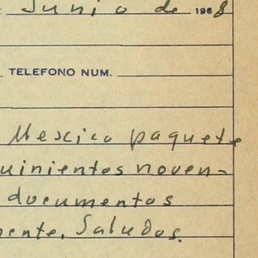 Junio de 1968
TELEFONO NUM.
Mexico paquete
uinientos noven-
documentos
mente. Saludos.